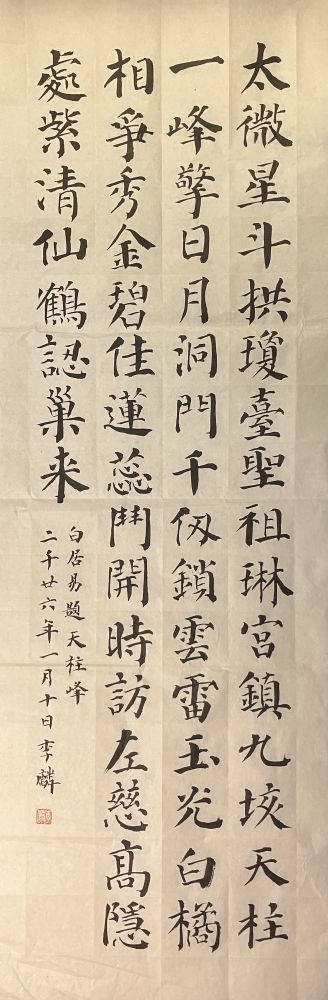 太微星斗拱瓊臺聖祖琳宮鎮九垓天柱
一峰擎日月洞門千仭鎖雲雷玉光白橘
相爭秀金碧佳蓮蕊鬥開時訪左慈高隱
處紫清仙鶴認巢来
白居易題天柱峰
二千廿六年一月十日李麟